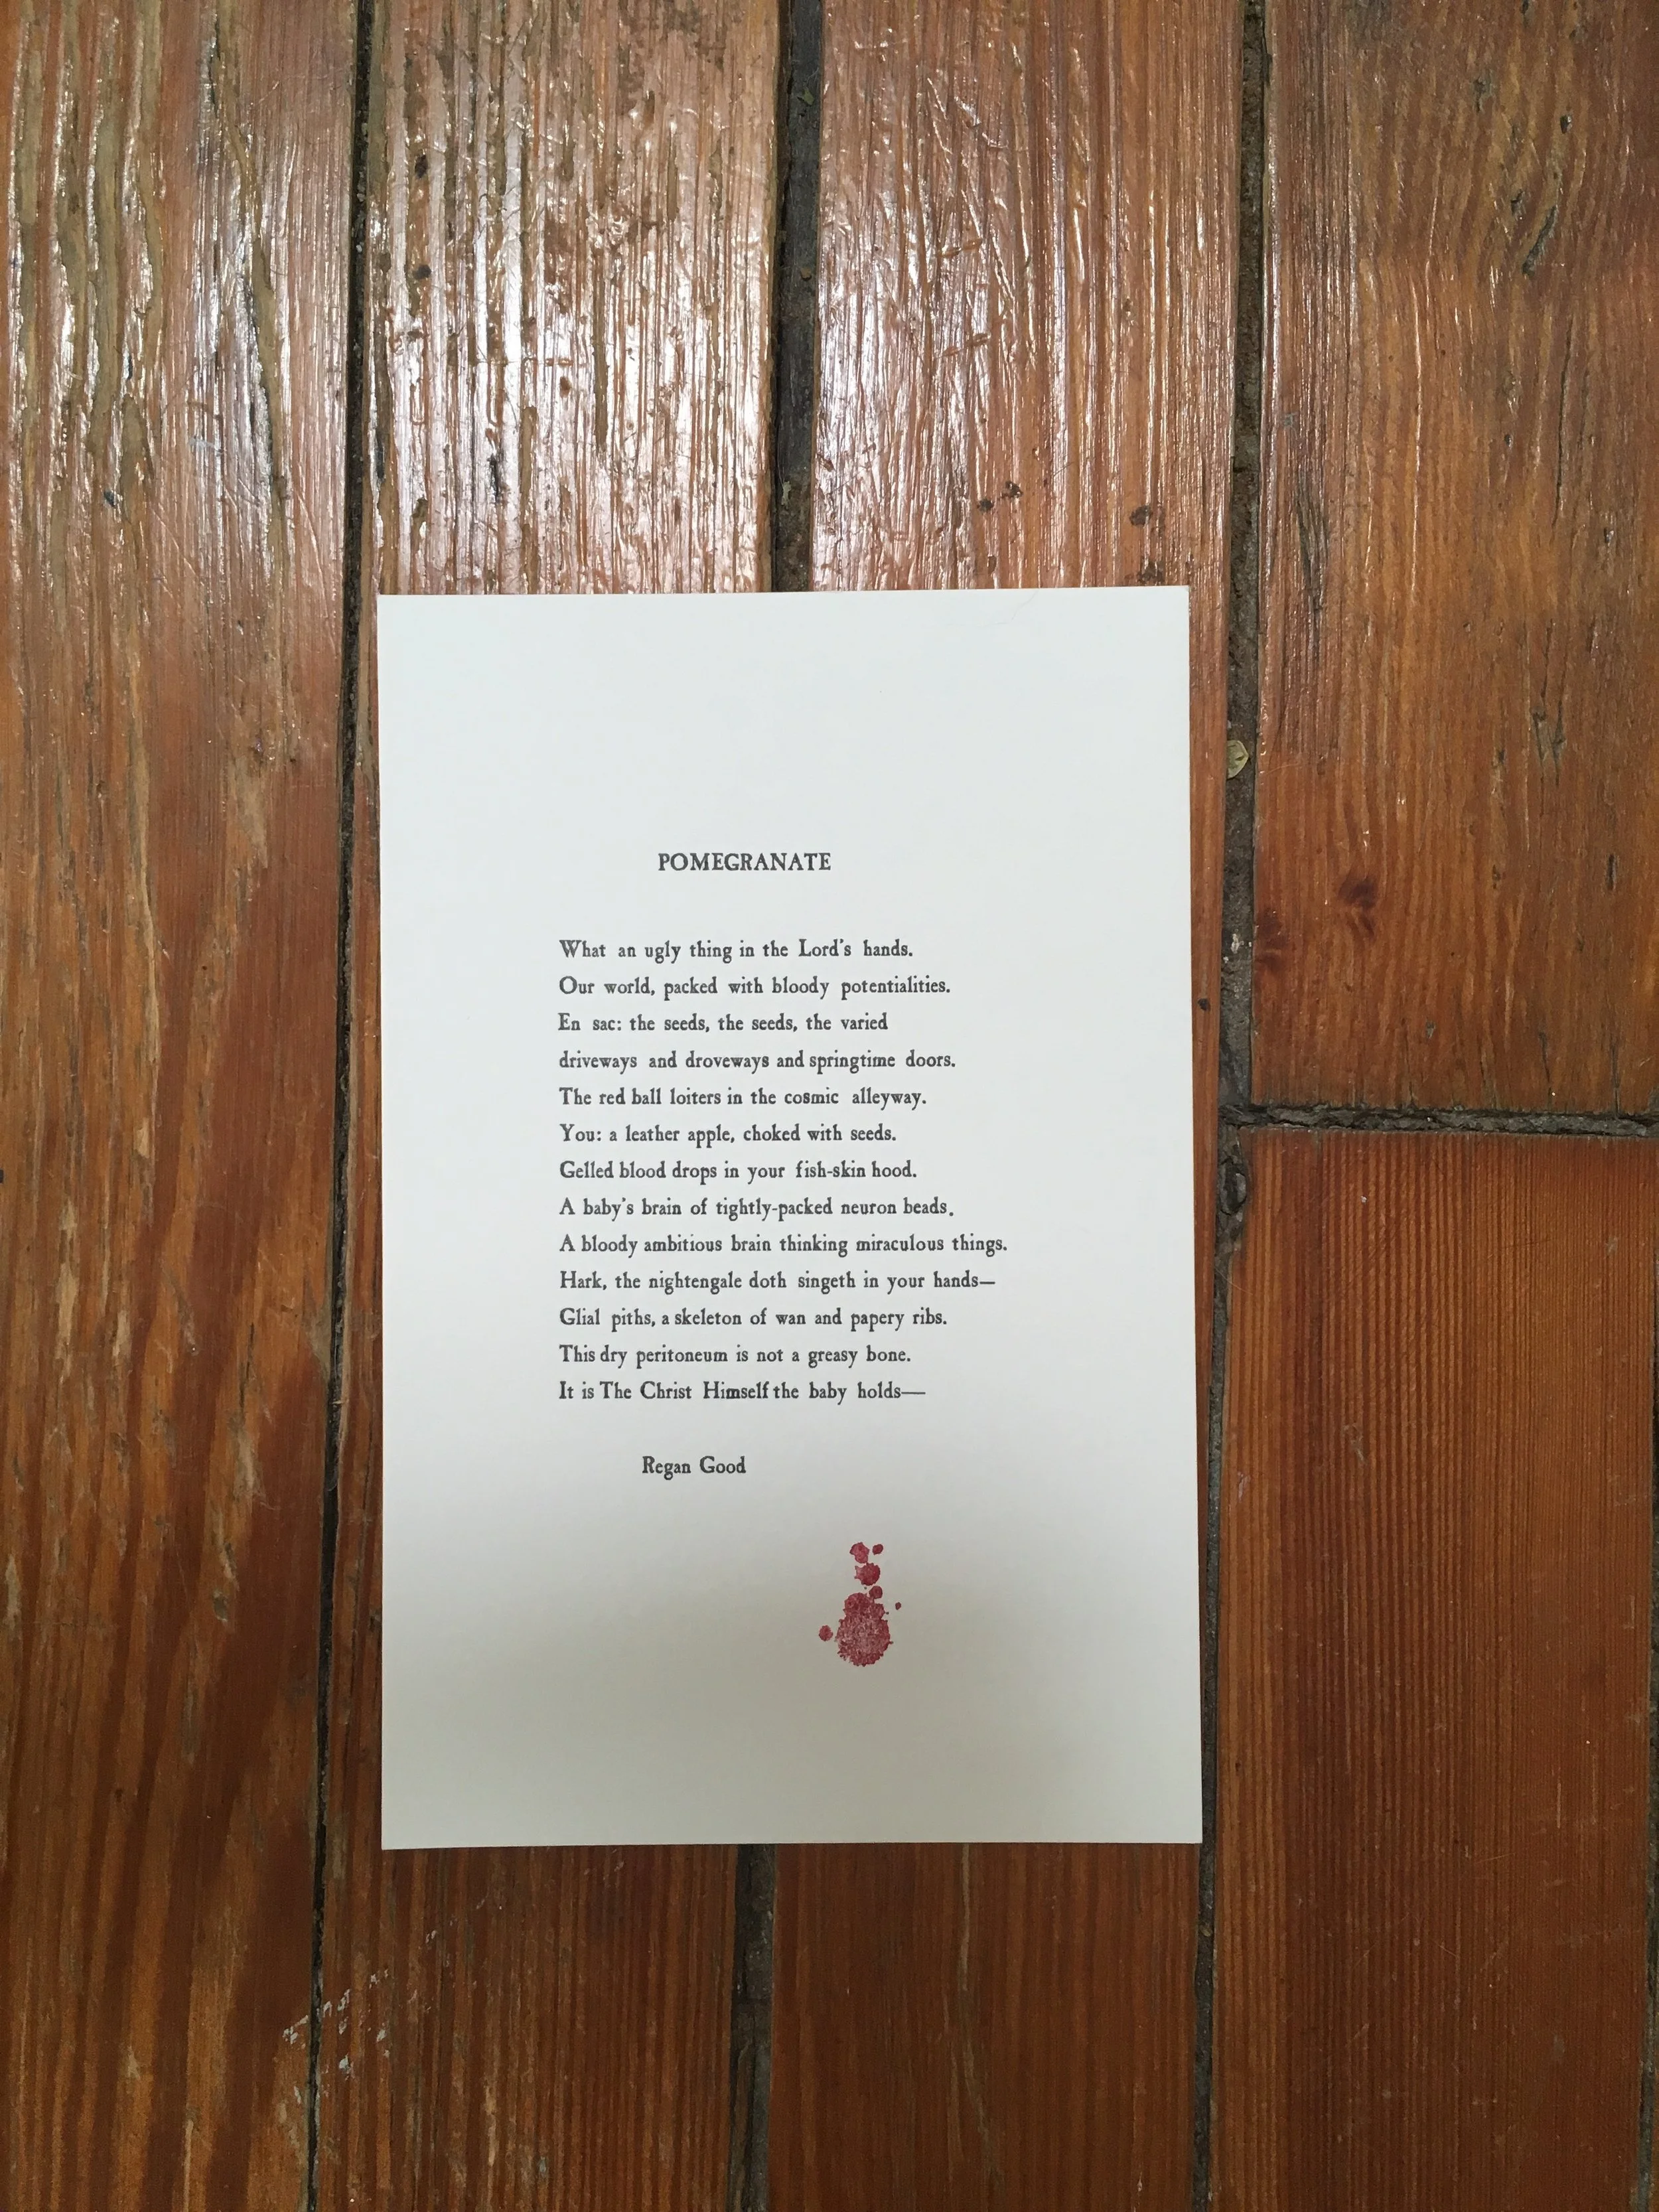 POMEGRANATE
What an ugly thing in the Lord's hands.
Our world, packed with bloody potentialities.
En sac: the seeds, the seeds, the varied
driveways and droveways and springtime doors.
The red ball loiters in the cosmic alleyway.
You: a leather apple, choked with seeds.
Gelled blood drops in your fish-skin hood.
A baby's brain of tightly-packed neuron beads.
A bloody ambitious brain thinking miraculous things.
Hark, the nightengale doth singeth in your hands—
Glial piths, a skeleton of wan and papery ribs.
This dry peritoneum is not a greasy bone.
It is The Christ Himself the baby holds—
Regan Good